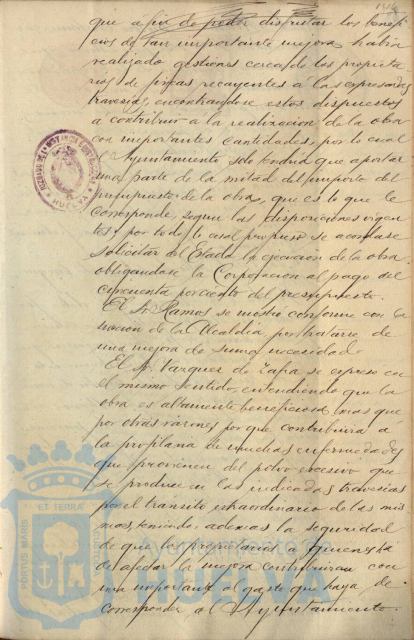 que a fin de poder disfrutar los benefi
cios de tan importante mejora, había
realizado gestiones cerca de los propieta
rios de fincas recayentes á las expresadas
travesías, encontrándose estos dispuestos
á contribuir á la realización de la obra
con importantes cantidades, por lo cual
el Ayuntamiento solo tendrá que aportar
una parte de la mitad del importe del
presupuesto de la obra, que es lo que le
corresponde, segun las disposiciones vigen
tes; por todo lo cual propuso se acordase
solicitar del Estado la ejecución de la obra
obligandose la Corporacion al pago del
cincuenta por ciento del presupuesto.
El Sr. Ramos se mostró conforme con la
mocion de la Alcaldía por tratarse de
una mejora de suma necesidad.
El Sr. Vazquez de Zafra se expresó en
el mismo sentido, entendiendo que la
obra es altamente beneficiosa, mas que
por otras razones porque contribuirá á
la profilaxis de muchas enfermedades
que provienen del polvo excesivo que
se produce en las indicadas travesías
por el transito extraordinario de las mis
mas, teniendo ademas la seguridad
de que los propietarios á quienes ha
de afectar la mejora contribuiran con
una importante al gasto que haya de
corresponder al Ayuntamiento.
HUELVA
PORTUS MARIS
ET TERRAE
Ayuntamiento de
HUELVA